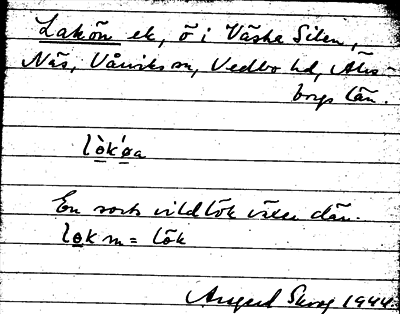 Lakön ek, ö i Västra Silen,
Näs, Vårviks sn, Vedbo hd, Älvs-
borgs län.
lò̱k'ø̱a
En sorts vildlök växer där.
lo̱k m = lök
Skog 1944.